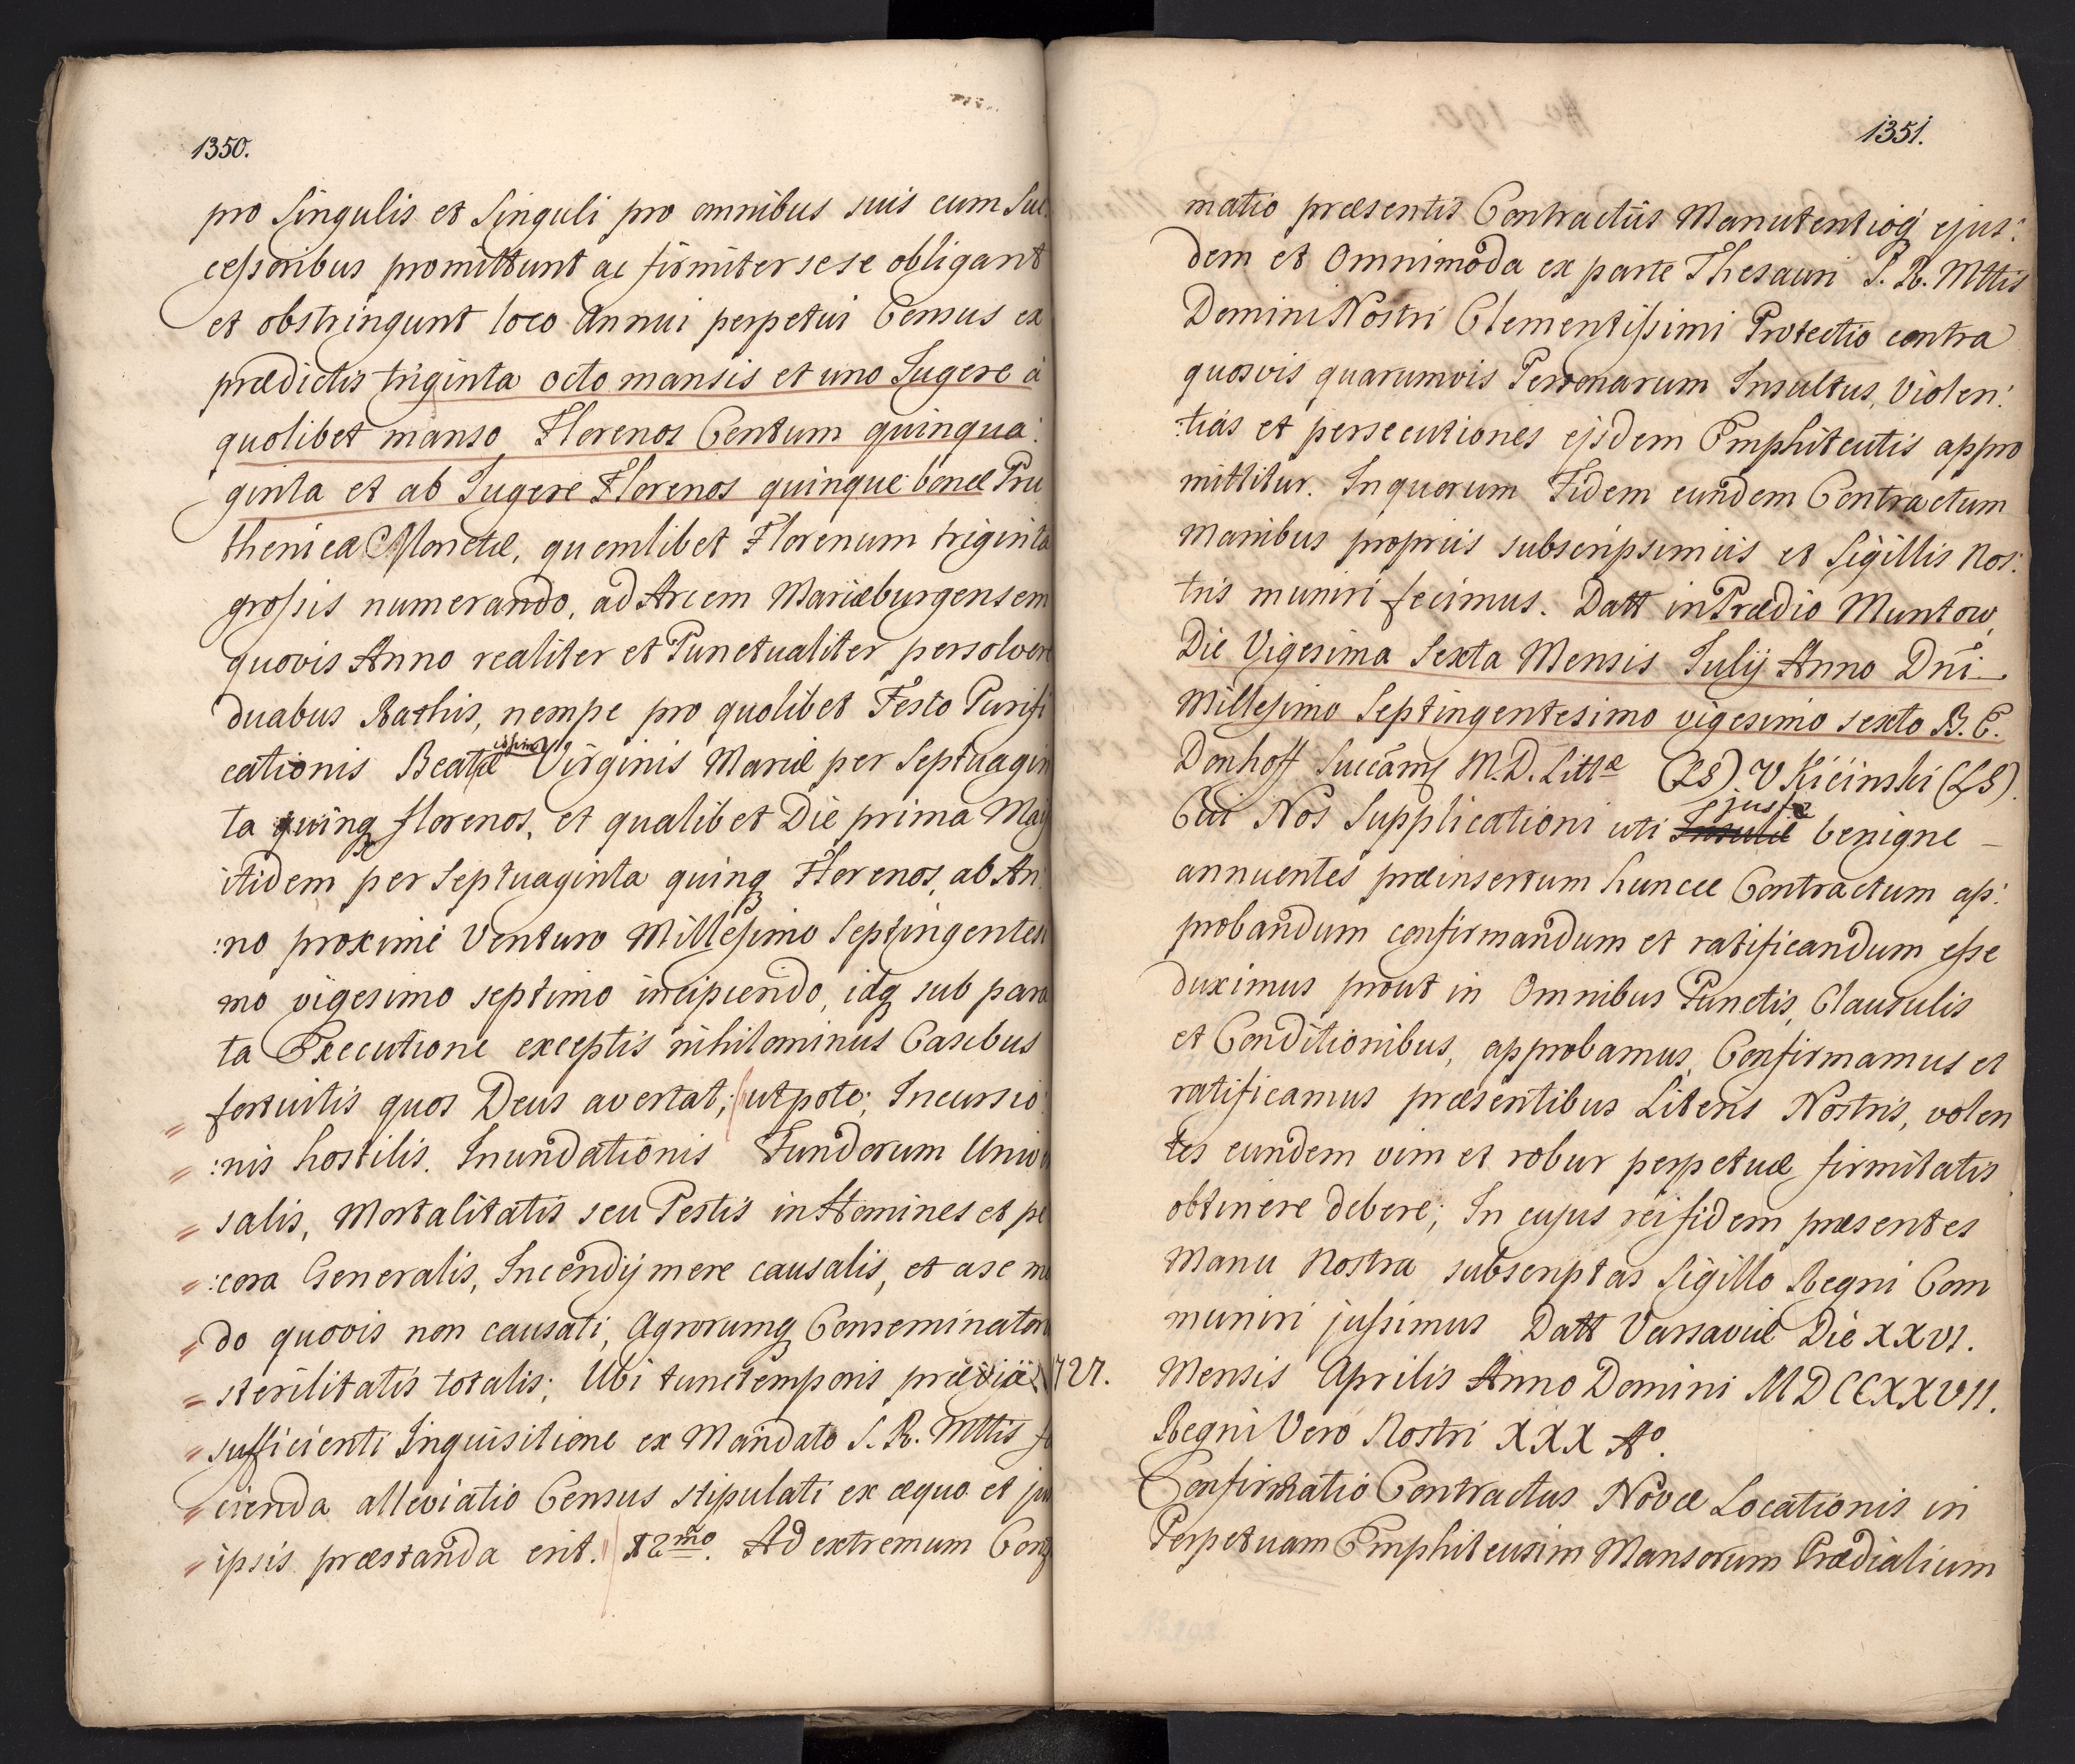 1350.
pro Singulis et Singuli pro omnibus suis cum Suc
cessoribus promittunt ac firmiter sese obligant
et obstringunt loco Annui perpetui Census ex
prædictis triginta octo mansis et uno Jugere à
quolibet manso Florenos Centum quinqua:
ginta et ab Jugere Florenos quinque bonæ Pru
thenicæ Monetæ, quemlibet Florenum triginta
grossis numerando, ad Arcem Mariæburgensem
quovis Anno realiter et Punctualiter persolvere
duabus Rathis, nempe pro quolibet Festo Purifi
cationis Beatissimæ Virginis Mariæ per Septuagin
ta quinq florenos, et qualibet Die prima Maij
itidem per Septuaginta quinq Florenos, ab An:
:no proximè Venturo Millesimo Septingentesi
mo vigesimo septimo incipiendo, idq sub para
ta Executione exceptis nihilominus Casibus
fortuitis quos Deus avertat; utpote; Incursio:
:nis hostilis. Inundationis Fundorum Univer
salis, Mortalitatis seu Pestis in Homines et pe
:cora Generalis, Incendij mere causalis, et a se mo
do quovis non causati, Agrorumq Conseminatoru
sterilitatis totalis; Ubi tunctemporis præviâ
sufficienti Inquisitione ex Mandato S. R. Mttis fa
cienda alleviatio Census stipulati ex æquo et ju
ipsis præstanda erit. 12mo. Ad extremum Conf
1351.
matio præsentis Contractûs Manutentioq ejus:
dem et Omnimoda ex parte Thesauri S. R. Mttis
Domini Nostri Clementissimi Protectio contra
quosvis quarumvis Personarum Insultus, Violen:
:tias et persecutiones ejsdem Emphiteutis appro
mittitur. In quorum Fidem eundem Contractum
Manibus propriis subscripsimus et Sigillis Nos:
tris muniri fecimus. Datt in Prædio Muntow,
Die Vigesima Sexta Mensis Julij Anno Dni
Millesimo Septingentesimo vigesimo sexto B. C.
Donhoff Succam M. D. Littæ (LS) V Kicinski (LS).
Cui Nos Supplicationi uti justæ benigne
annuentes præinsertum huncce Contractum ap:
probandum confirmandum et ratificandum esse
duximus prout in Omnibus Punctis, Clausulis
et Conditionibus, approbamus, Confirmamus et
ratificamus præsentibus Literis Nostris, volen
tes eundem vim et robur perpetuæ firmitatis
obtinere debere; In cujus rei fidem præsentes
Manu Nostra subscriptas Sigillo Regni Com
muniri jussimus Datt Varsaviæ Die XXVI.
1727. Mensis Aprilis Anno Domini MDCCXXVII.
Regni Vero Nostri XXX Ao.
Confirmatio Contractus Novæ Locationis in
Perpetuam Emphiteusim Mansorum Prædialium